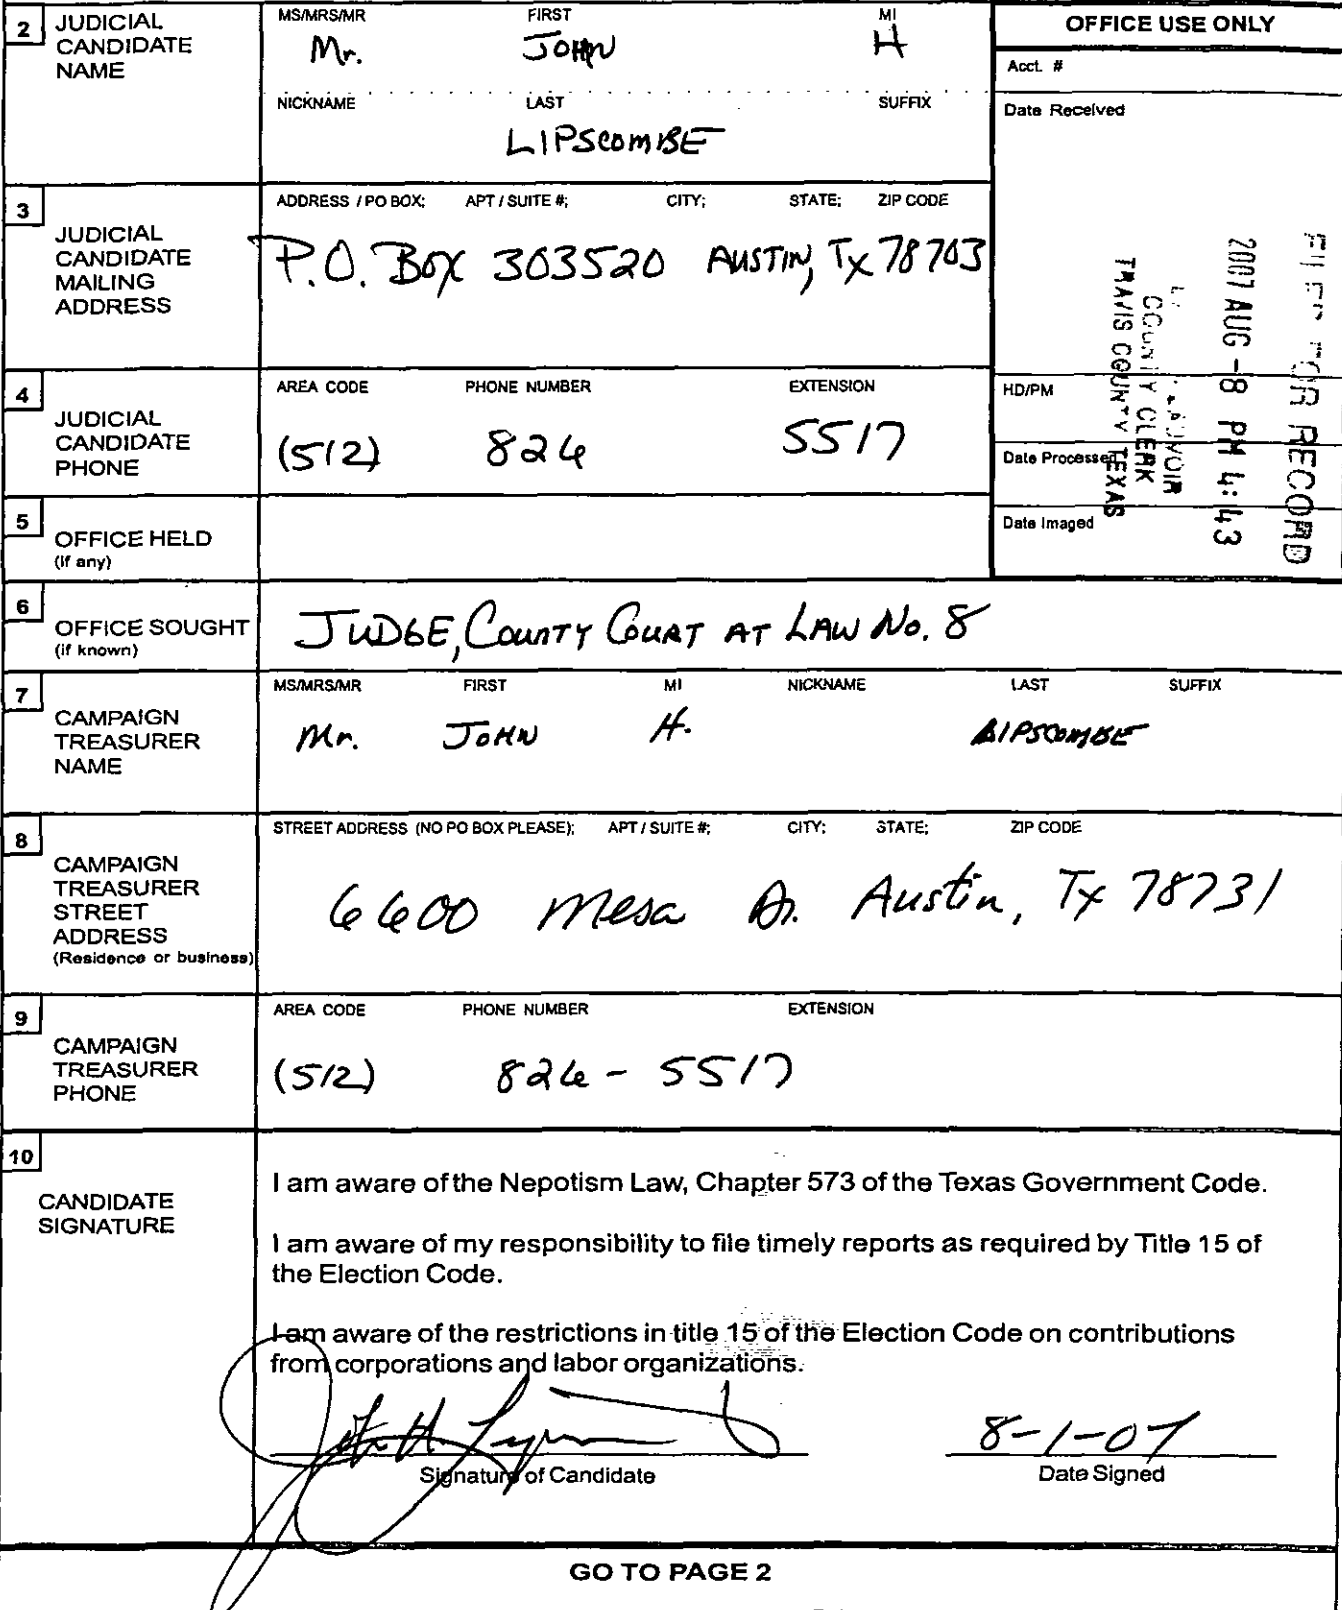 2 JUDICIAL CANDIDATE NAME
MS/MRS/MR FIRST MI
Mr. JOHN H
NICKNAME LAST SUFFIX
LIPSCOMBE
OFFICE USE ONLY
Acct. #
Date Received
HD/PM
Date Processed
Date Imaged
FOR RECORD
2007 AUG -8 PM 4:43
COUNTY CLERK
TRAVIS COUNTY TEXAS
3 JUDICIAL CANDIDATE MAILING ADDRESS
ADDRESS / PO BOX; APT / SUITE #; CITY; STATE; ZIP CODE
P.O. BOX 303520 AUSTIN, TX 78703
4 JUDICIAL CANDIDATE PHONE
AREA CODE PHONE NUMBER EXTENSION
(512) 826 5517
5 OFFICE HELD
(if any)
6 OFFICE SOUGHT
(if known)
JUDGE, COUNTY COURT AT LAW No. 8
7 CAMPAIGN TREASURER NAME
MS/MRS/MR FIRST MI NICKNAME LAST SUFFIX
Mr. JOHN H. LIPSCOMBE
8 CAMPAIGN TREASURER STREET ADDRESS
(Residence or business)
STREET ADDRESS (NO PO BOX PLEASE); APT / SUITE #; CITY; STATE; ZIP CODE
6600 Mesa Dr. Austin, Tx 78731
9 CAMPAIGN TREASURER PHONE
AREA CODE PHONE NUMBER EXTENSION
(512) 826-5517
10 CANDIDATE SIGNATURE
I am aware of the Nepotism Law, Chapter 573 of the Texas Government Code.
I am aware of my responsibility to file timely reports as required by Title 15 of
the Election Code.
I am aware of the restrictions in title 15 of the Election Code on contributions
from corporations and labor organizations.
8-1-07
Signature of Candidate Date Signed
GO TO PAGE 2